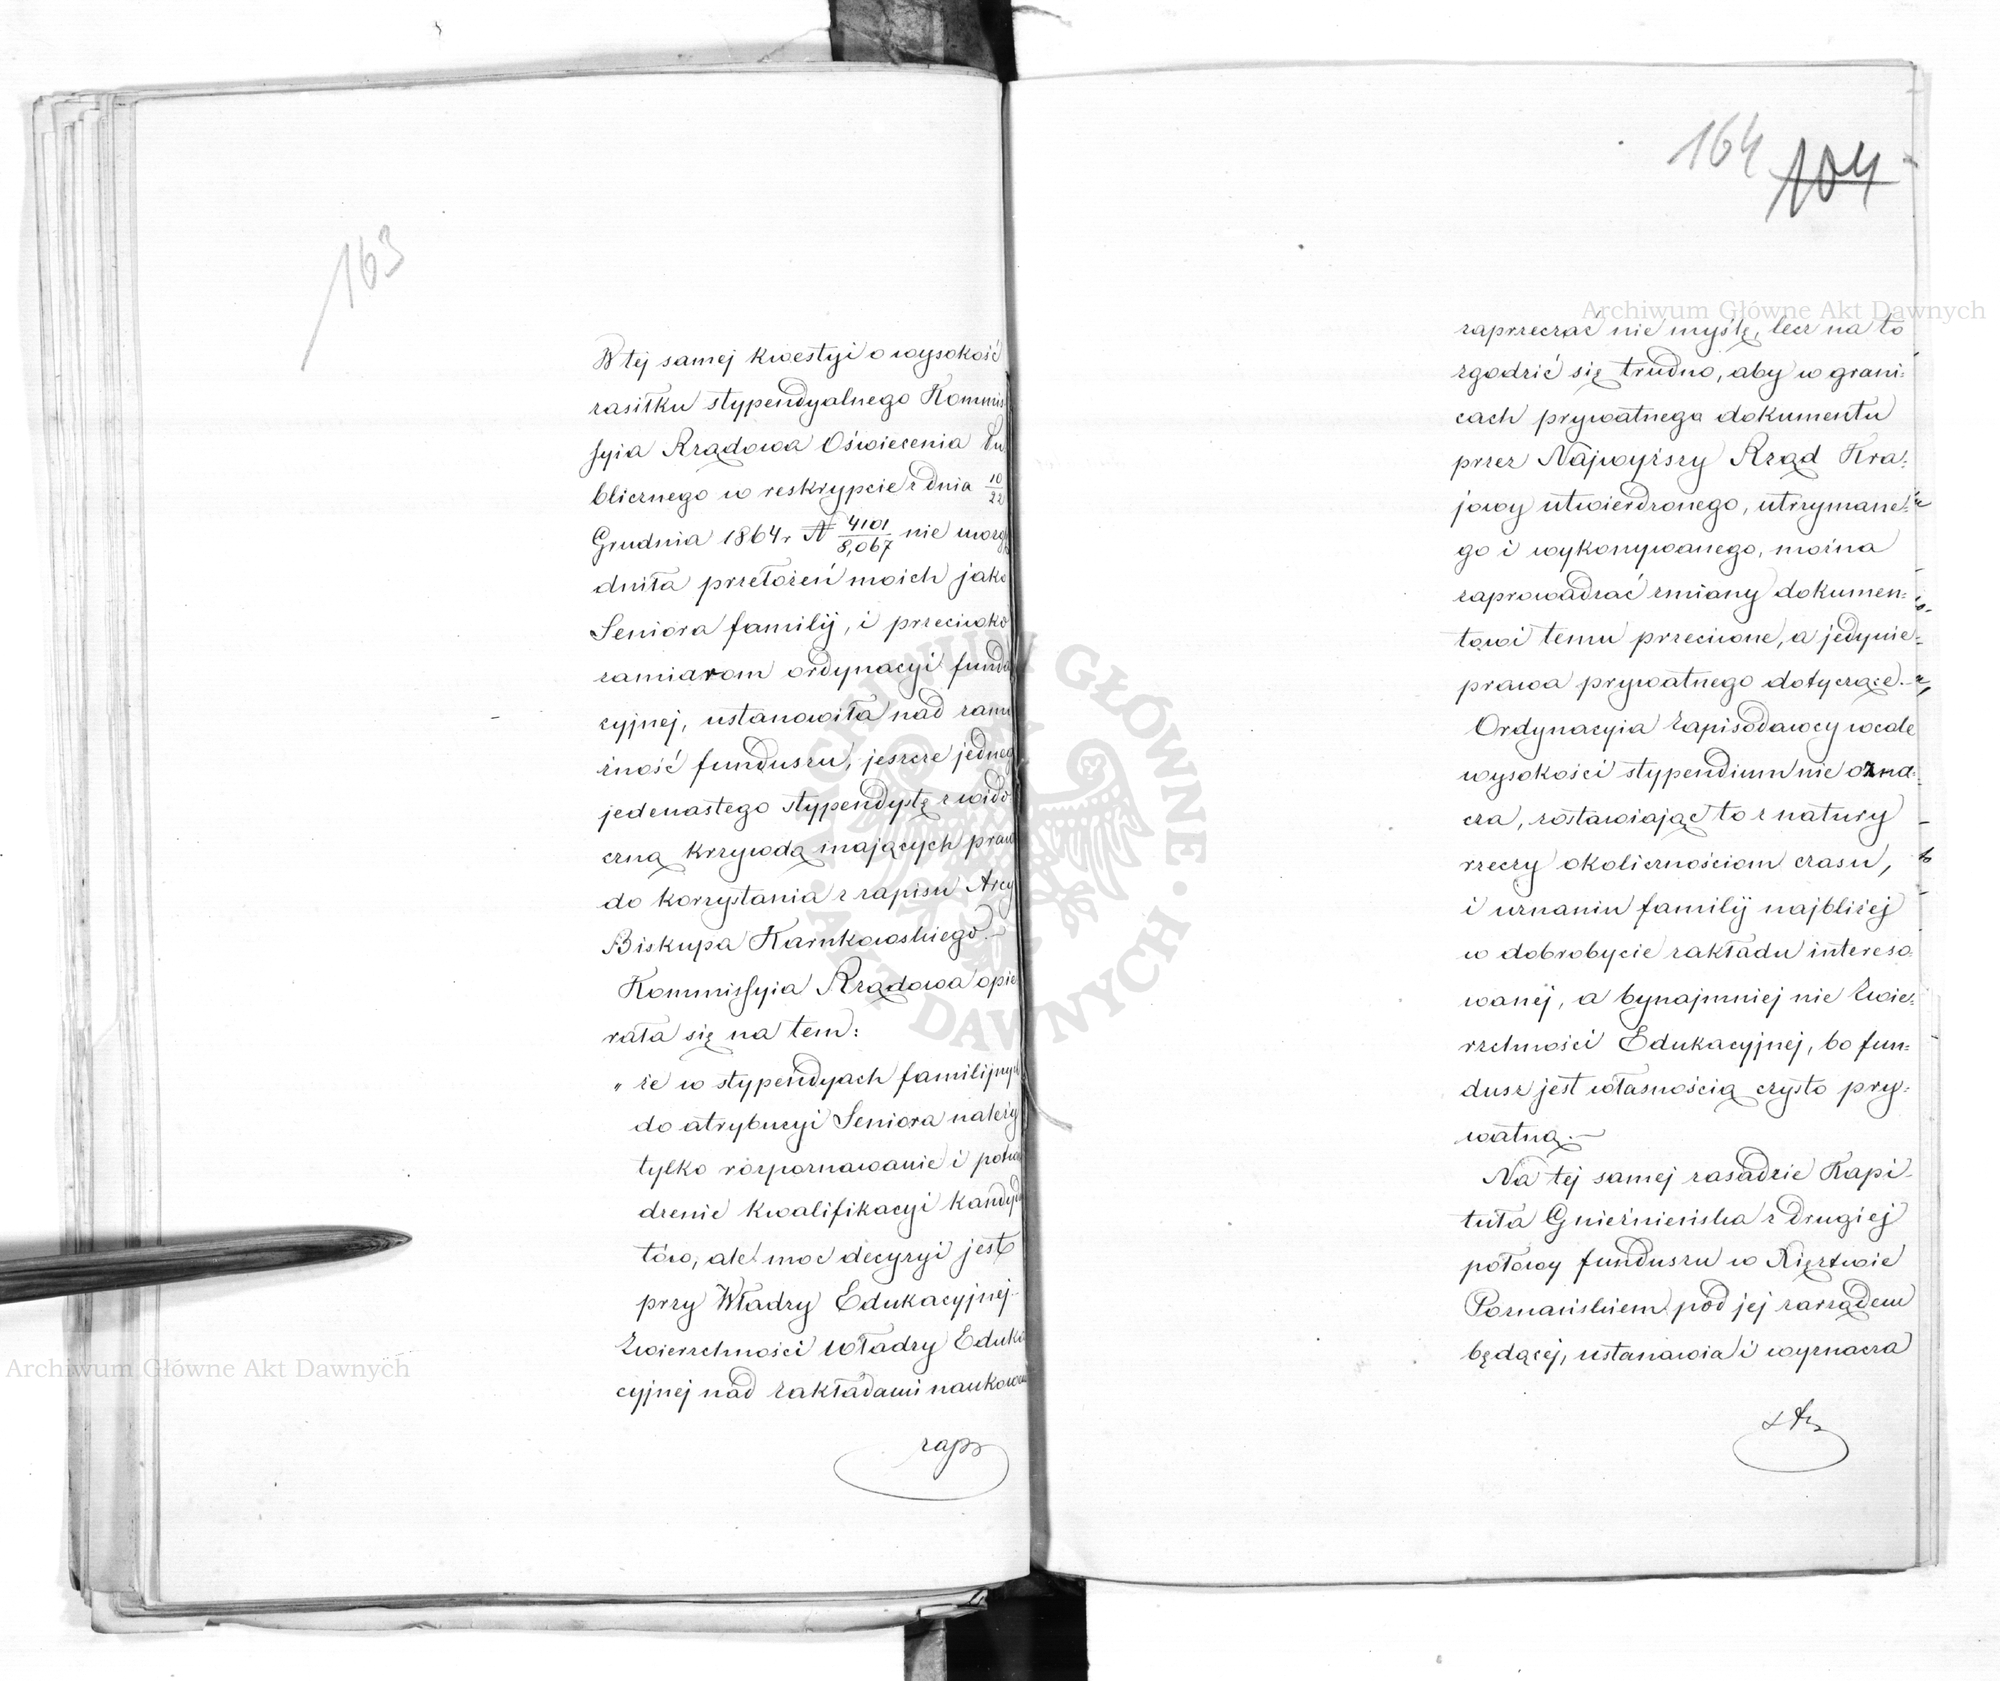 163
W tej samej kwestyi o wysokość
zasiłku stypendyalnego Kommis
syia Rządowa Oświecenia Pu
blicznego w reskrypcie z dnia 10/22
Grudnia 1864 r. N 4101/8,067 nie uwzglę
dniła przełożeń moich jako
Seniora familij, i przeciwko
zamiarom ordynacyi fundu
cyjnej, ustanowiła nad zamo
żność funduszu, jeszcze jedneg
jedenastego stypendystę z wido
czną krzywdą mających praw
do korzystania z zapisu Arcy
Biskupa Karnkowskiego.—
Kommissyia Rządowa opie
rała się na tem:
„ że w stypendyach familijnych
do atrybucyi Seniora należy
tylko rozpoznawanie i potwie
dzenie kwalifikacyi kandyda
tów, ale moc decyzyi jest
przy Władzy Edukacyjnej.
Zwierzchności Władzy Eduka
cyjnej nad zakładami naukowemi
zaprz
164 104
zaprzeczać nie myślę, lecz na to
zgodzić się trudno, aby w grani:
cach prywatnego dokumentu
przez Najwyższy Rząd Kra:
jowy utwierdzonego, utrzymane:
go i wykonywanego, można
zaprowadzać zmiany dokumen:
towi temu przeciwne, a jedynie
prawa prywatnego dotyczące.—
Ordynacyia Zapisodawcy wcale
wysokości stypendium nie ozna:
cza, zostawiając to z natury
rzeczy okolicznościom czasu,
i uznaniu familij najbliżej
w dobrobycie zakładu intereso:
wanej, a bynajmniej nie Zwie:
rzchności Edukacyjnej, bo fun:
dusz jest własnością czysto pry:
watną.—
Na tej samej zasadzie Kapi-
tuła Gnieźnieńska z drugiej
połowy funduszu w Xięztwie
Poznańskiem pod jej zarządem
będącej, ustanawia i wyznacza
Archiwum Główne Akt Dawnych
Archiwum Główne Akt Dawnych
ARCHIWUM GŁÓWNE AKT DAWNYCH